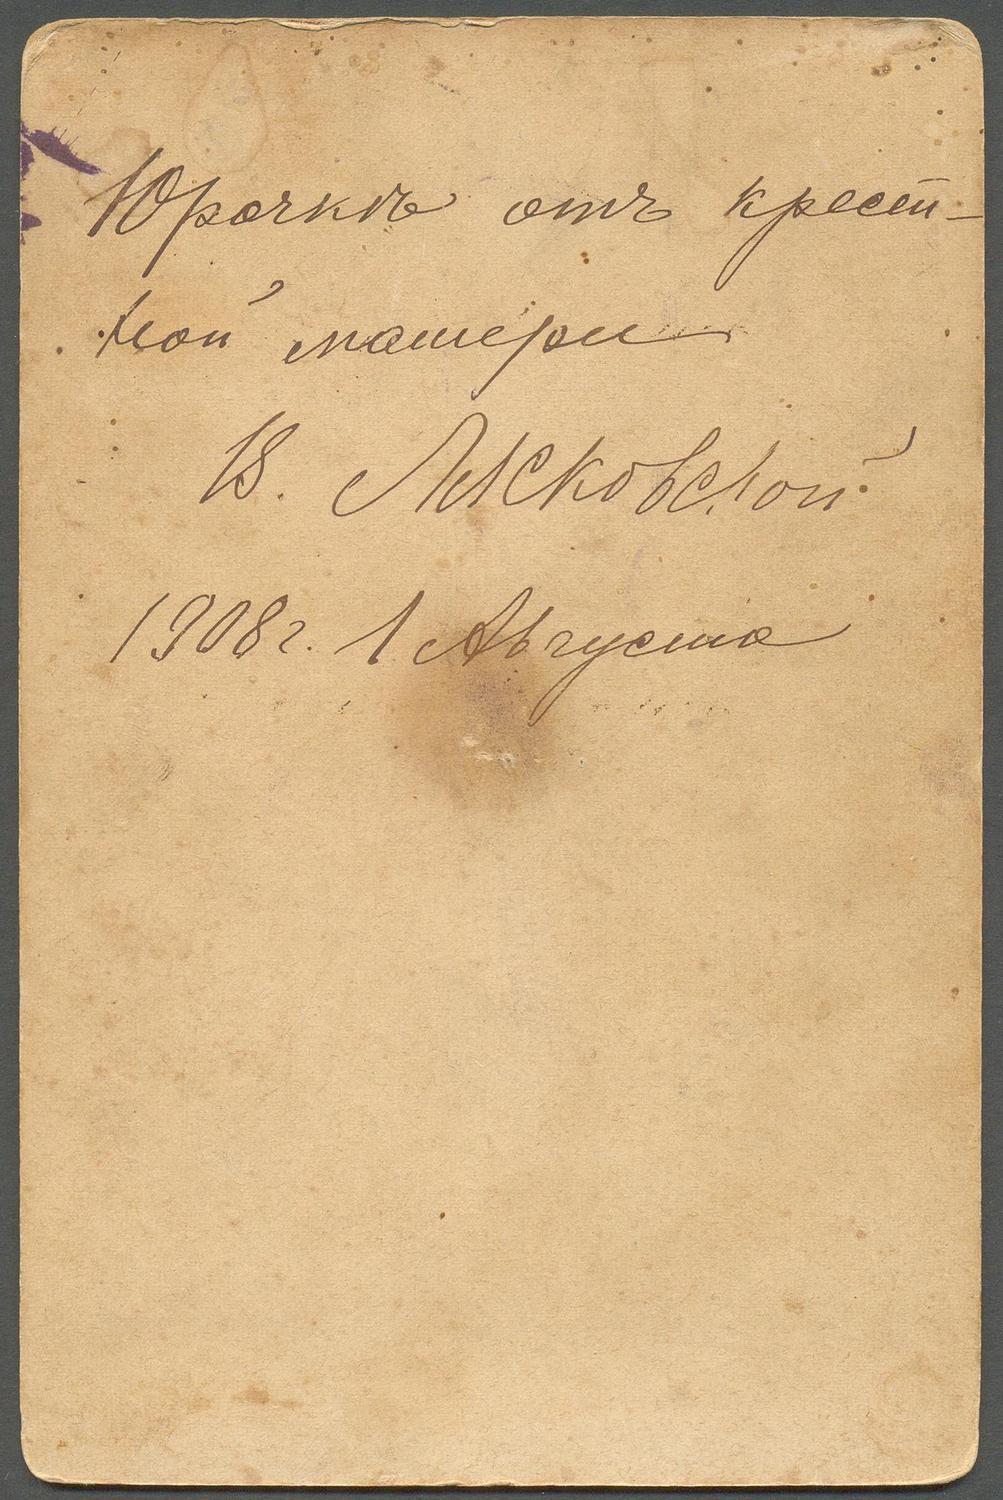 Юрочкѣ отъ крест-
ной матери
В. Лясковской
1908 г. 1 Августа